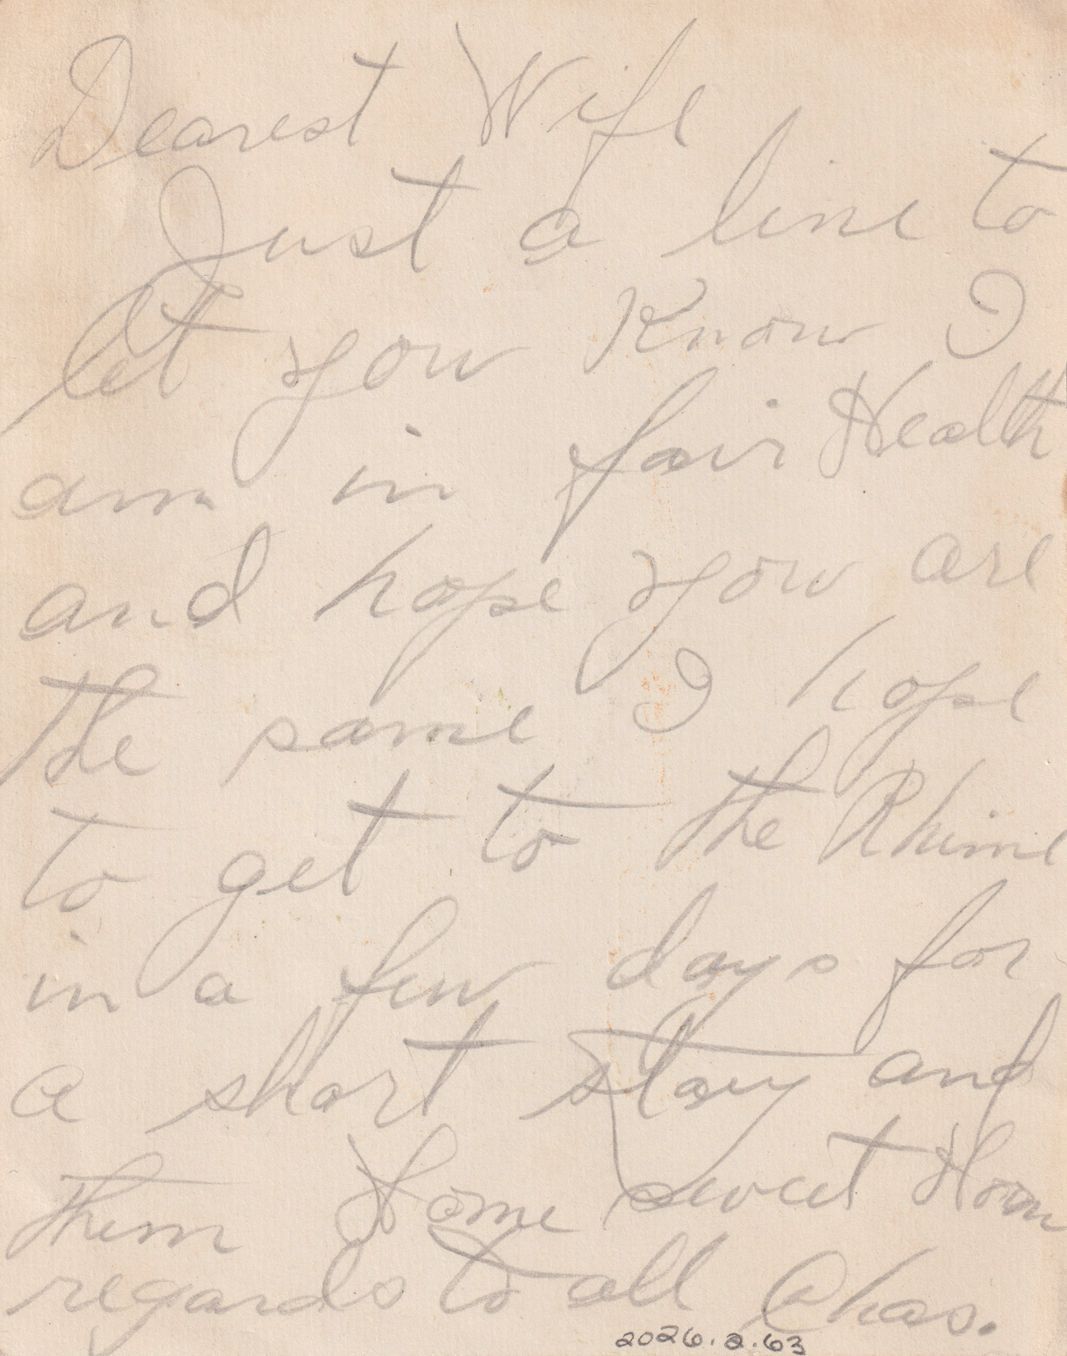 Dearest Wife
Just a line to
let you Know I
am in fair Health
and hope you are
the same I hope
to get to the Rhine
in a few days for
a short stay and
them Home sweet Home
regards to all Chas.
2026.2.63